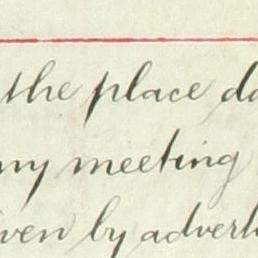 the place da
ny meeting
iven by adverti